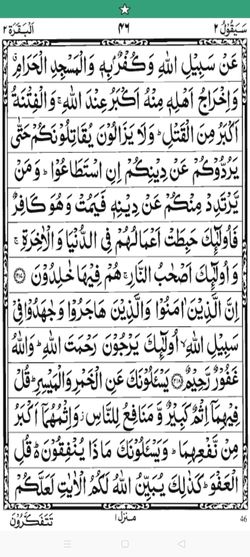 سَيَقُوْلُ ٢ ٤٦ اَلْبَقَرَة ٢
عَنْ سَبِيْلِ اللّٰهِ وَكُفْرٌۢ بِهٖ وَالْمَسْجِدِ الْحَرَامِ ۗ
وَاِخْرَاجُ اَهْلِهٖ مِنْهُ اَكْبَرُ عِنْدَ اللّٰهِ ۚ وَالْفِتْنَةُ
اَكْبَرُ مِنَ الْقَتْلِ ؕ وَلَا يَزَالُوْنَ يُقَاتِلُوْنَكُمْ حَتّٰى
يَرُدُّوْكُمْ عَنْ دِيْنِكُمْ اِنِ اسْتَطَاعُوْا ؕ وَمَنْ
يَّرْتَدِدْ مِنْكُمْ عَنْ دِيْنِهٖ فَيَمُتْ وَهُوَ كَافِرٌ
فَاُولٰٓئِكَ حَبِطَتْ اَعْمَالُهُمْ فِى الدُّنْيَا وَالْاٰخِرَةِ ۚ
وَاُولٰٓئِكَ اَصْحٰبُ النَّارِ ۚ هُمْ فِيْهَا خٰلِدُوْنَ ﴿٢١٧﴾
اِنَّ الَّذِيْنَ اٰمَنُوْا وَالَّذِيْنَ هَاجَرُوْا وَجٰهَدُوْا فِىْ
سَبِيْلِ اللّٰهِ ۙ اُولٰٓئِكَ يَرْجُوْنَ رَحْمَتَ اللّٰهِ ؕ وَاللّٰهُ
غَفُوْرٌ رَّحِيْمٌ ﴿٢١٨﴾ يَسْئَلُوْنَكَ عَنِ الْخَمْرِ وَالْمَيْسِرِ ؕ قُلْ
فِيْهِمَاۤ اِثْمٌ كَبِيْرٌ وَّمَنَافِعُ لِلنَّاسِ ۫ وَاِثْمُهُمَاۤ اَكْبَرُ
مِنْ نَّفْعِهِمَا ؕ وَيَسْئَلُوْنَكَ مَاذَا يُنْفِقُوْنَ ؕ قُلِ
الْعَفْوَ ؕ كَذٰلِكَ يُبَيِّنُ اللّٰهُ لَكُمُ الْاٰيٰتِ لَعَلَّكُمْ
تَتَفَكَّرُوْنَ منزل ١ 46